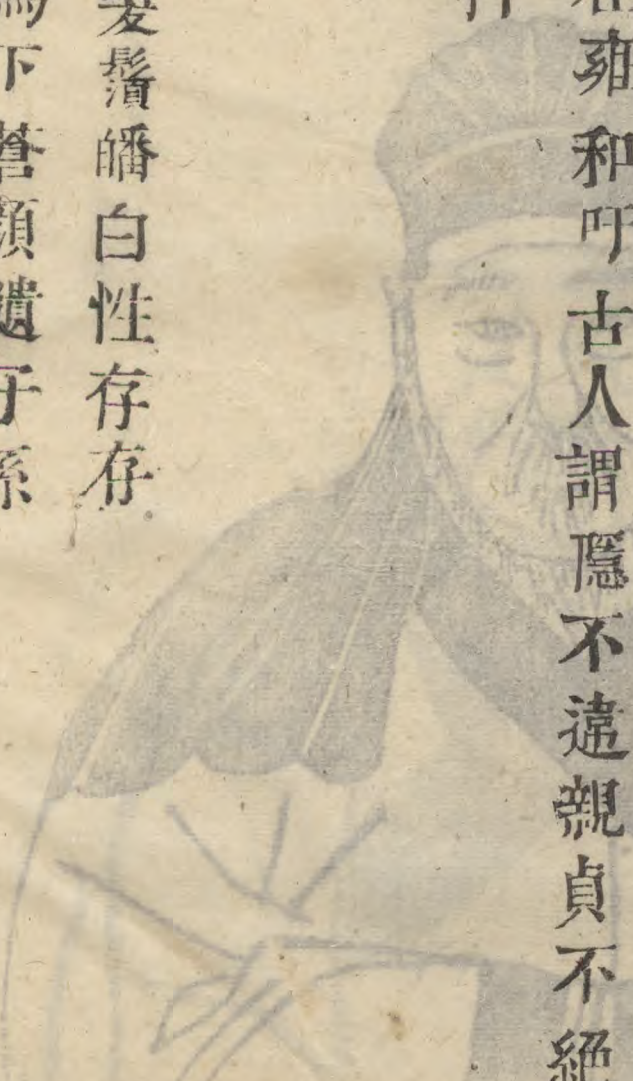 雍和吁古人謂隱不違親貞不絕
鬚皤白性存存
下蒼顏遺子孫